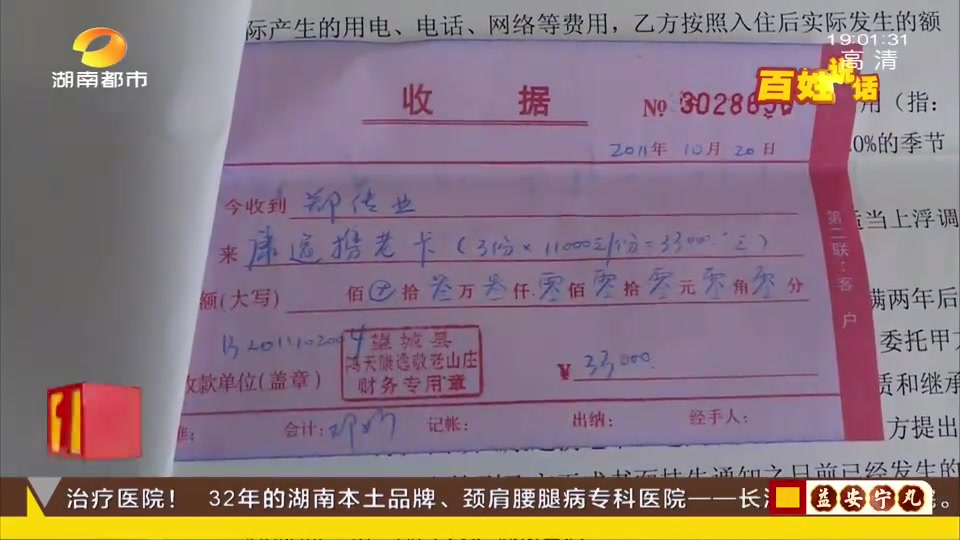 湖南都市
19:01:31
高清
百姓说话
际产生的用电、电话、网络等费用，乙方按照入住后实际发生的额
用（指：
0%的季节
适当上浮调
满两年后
委托甲方
质和继承
方提出
收 据
№ 302865
2011年 10月 20日
今收到 郑传业
来 康逸携老卡（3份×11000元/份=33000元）
额(大写) 佰 拾 叁万 叁仟 零佰 零拾 零元 零角 零分
B2011102004
望城县
鸿天康逸敬老山庄
财务专用章
收款单位(盖章)
¥ 33000
会计: 记帐: 出纳: 经手人:
第二联：客户
治疗医院！ 32年的湖南本土品牌、颈肩腰腿病专科医院——长
益安宁丸